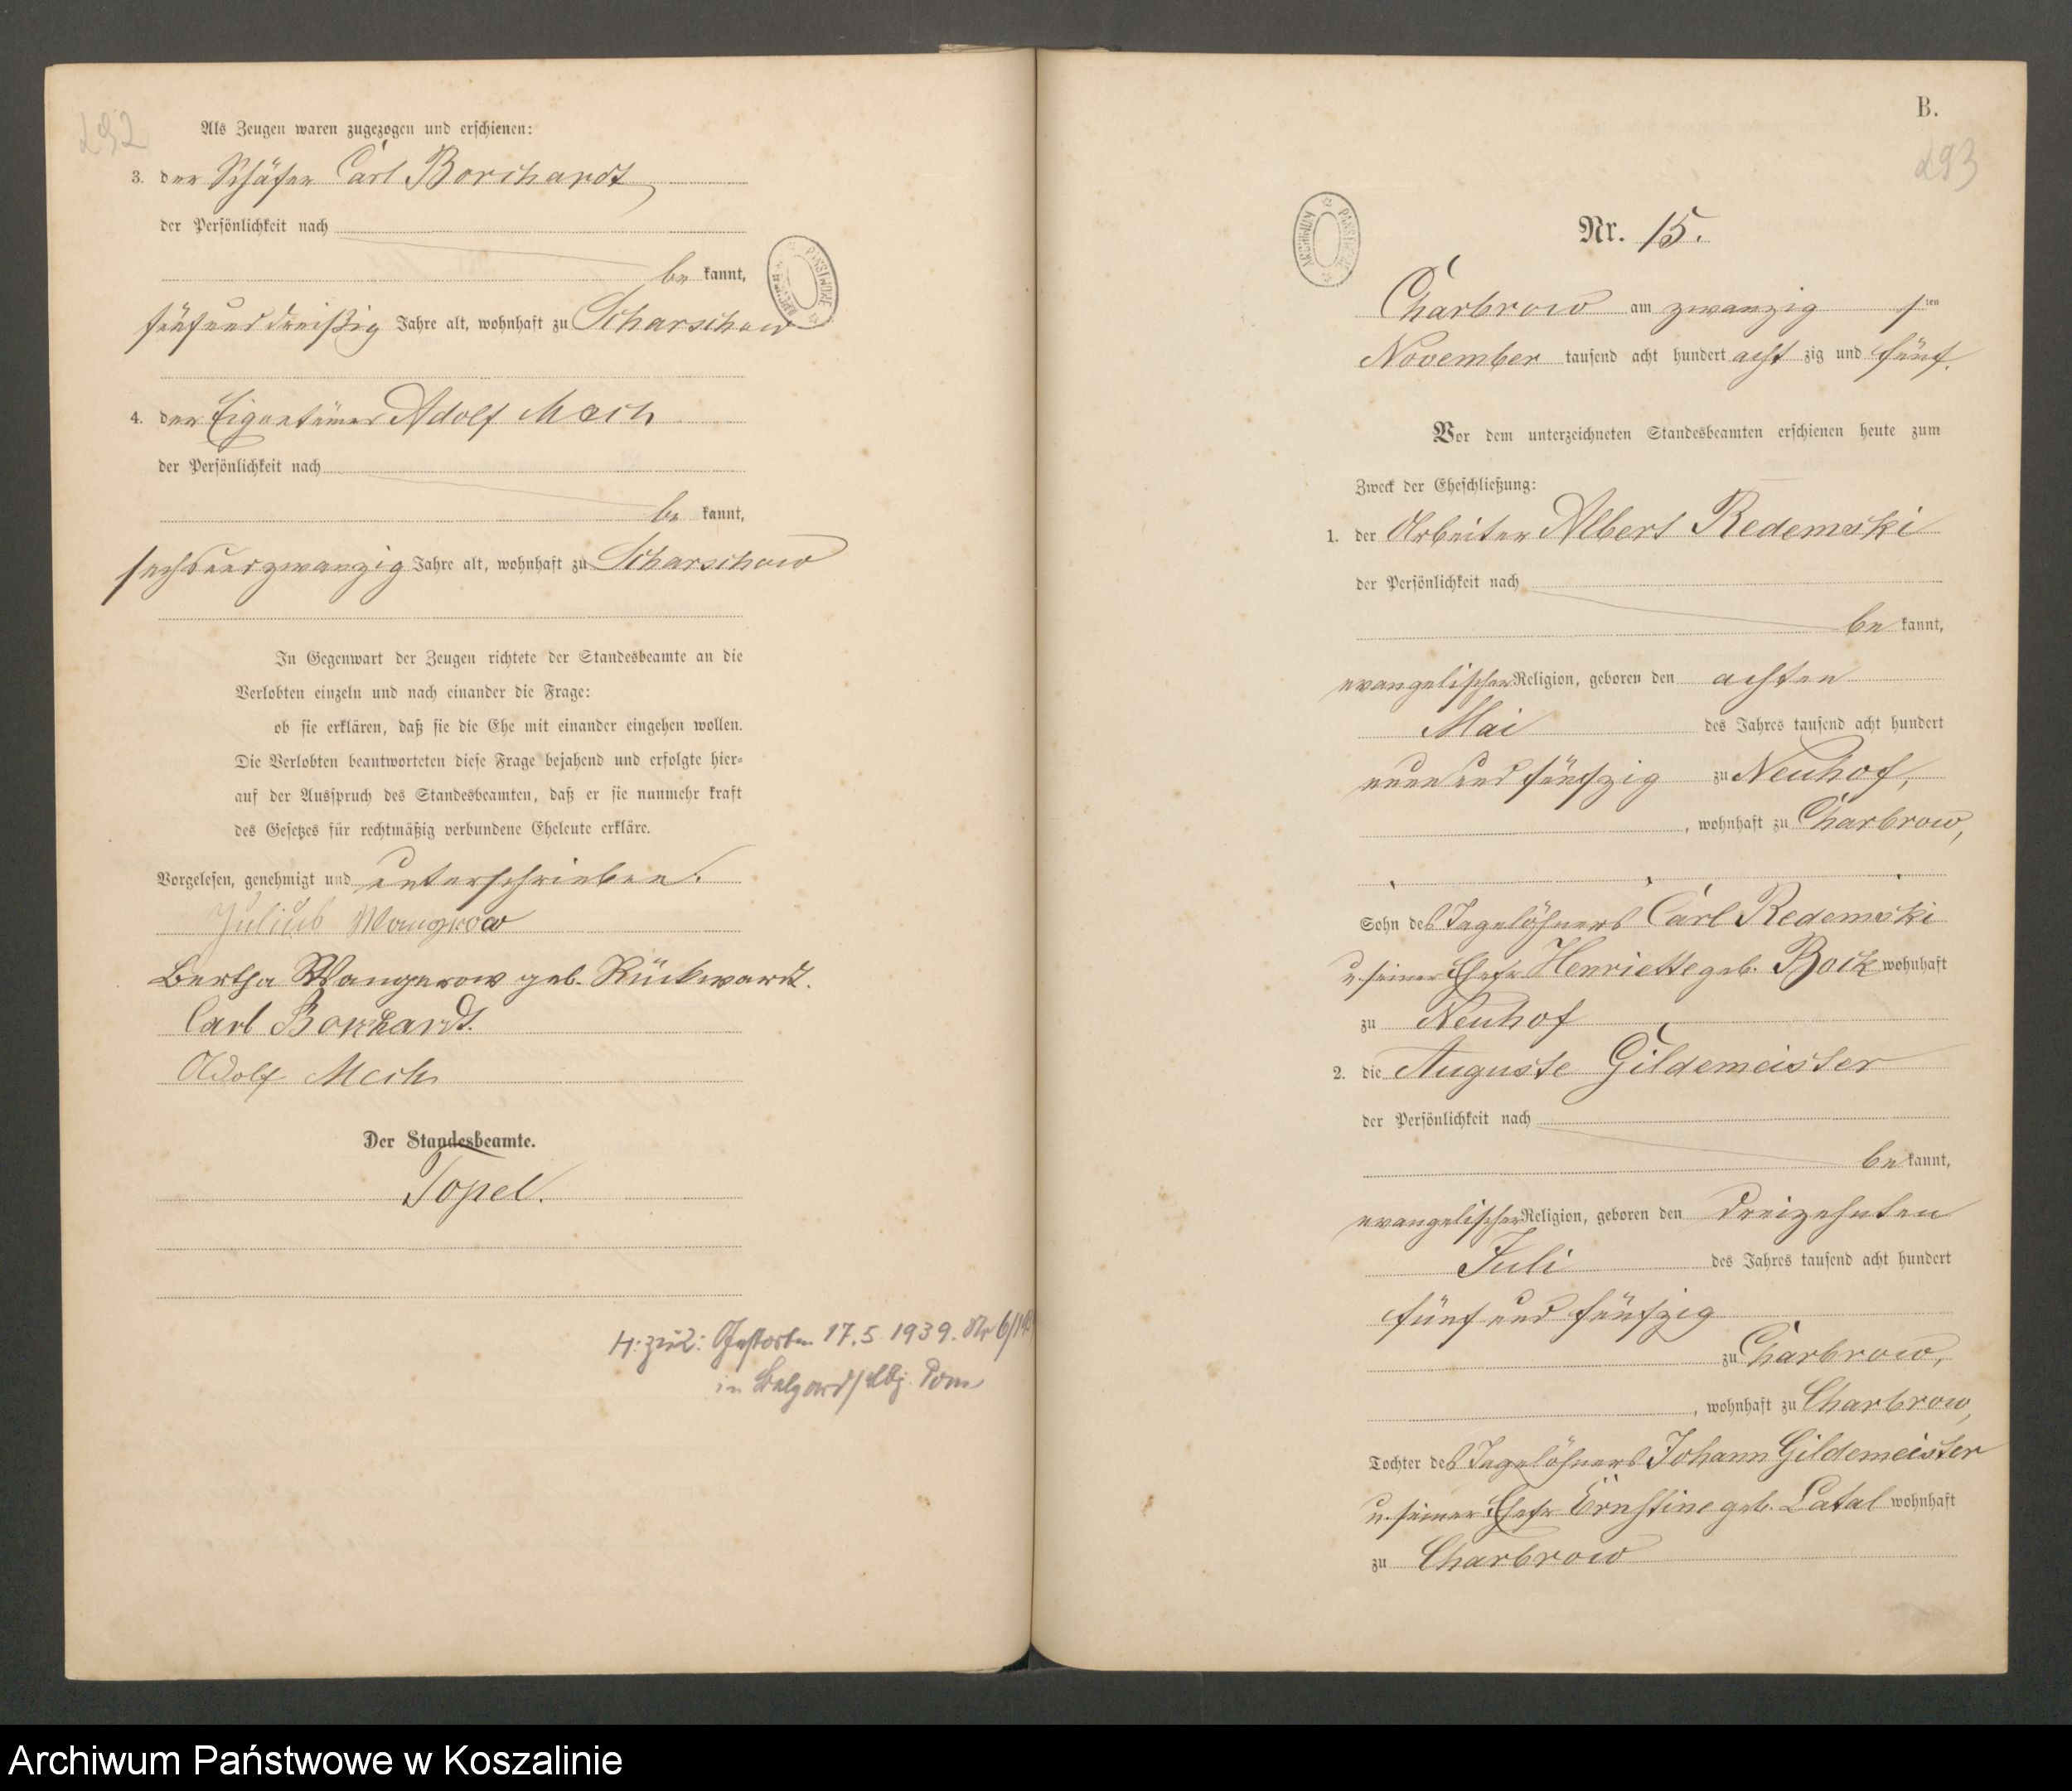 292
Als Zeugen waren zugezogen und erschienen:
3. der Schäfer Carl Borchardt
der Persönlichkeit nach
be kannt,
fünfunddreißig Jahre alt, wohnhaft zu Scharschow
4. der Eigentümer Adolf Mach
der Persönlichkeit nach
be kannt,
sechsundzwanzig Jahre alt, wohnhaft zu Scharschow
In Gegenwart der Zeugen richtete der Standesbeamte an die
Verlobten einzeln und nach einander die Frage:
ob sie erklären, daß sie die Ehe mit einander eingehen wollen.
Die Verlobten beantworteten diese Frage bejahend und erfolgte hier-
auf der Ausspruch des Standesbeamten, daß er sie nunmehr kraft
des Gesetzes für rechtmäßig verbundene Eheleute erkläre.
Vorgelesen, genehmigt und unterschrieben.
Julius Wangrow
Bertha Wangerow geb. Rückwardt.
Carl Borchardt.
Adolf Mach
Der Standesbeamte.
Topel.
H: zu 2: Gestorben 17.5.1939. Nr 6/19
in Belgard/Lbg. Pom
B.
293
ARCHIWUM PAŃSTWOWE
Nr. 15.
Charbrow am zwanzig sten
November tausend acht hundert acht zig und fünf.
Vor dem unterzeichneten Standesbeamten erschienen heute zum
Zweck der Eheschließung:
1. der Arbeiter Albert Redemski
der Persönlichkeit nach
be kannt,
evangelischer Religion, geboren den achten
Mai des Jahres tausend acht hundert
neun und fünfzig zu Neuhof,
, wohnhaft zu Charbrow,
Sohn des Tagelöhners Carl Redemski
u. seiner Ehefr Henriette geb. Bock wohnhaft
zu Neuhof
2. die Auguste Gildemeister
der Persönlichkeit nach
be kannt,
evangelischer Religion, geboren den dreizehnten
Juli des Jahres tausend acht hundert
fünf und fünfzig
zu Charbrow,
, wohnhaft zu Charbrow,
Tochter des Tagelöhners Johann Gildemeister
u. seiner Ehefr Ernstine geb. Latal wohnhaft
zu Charbrow
Archiwum Państwowe w Koszalinie